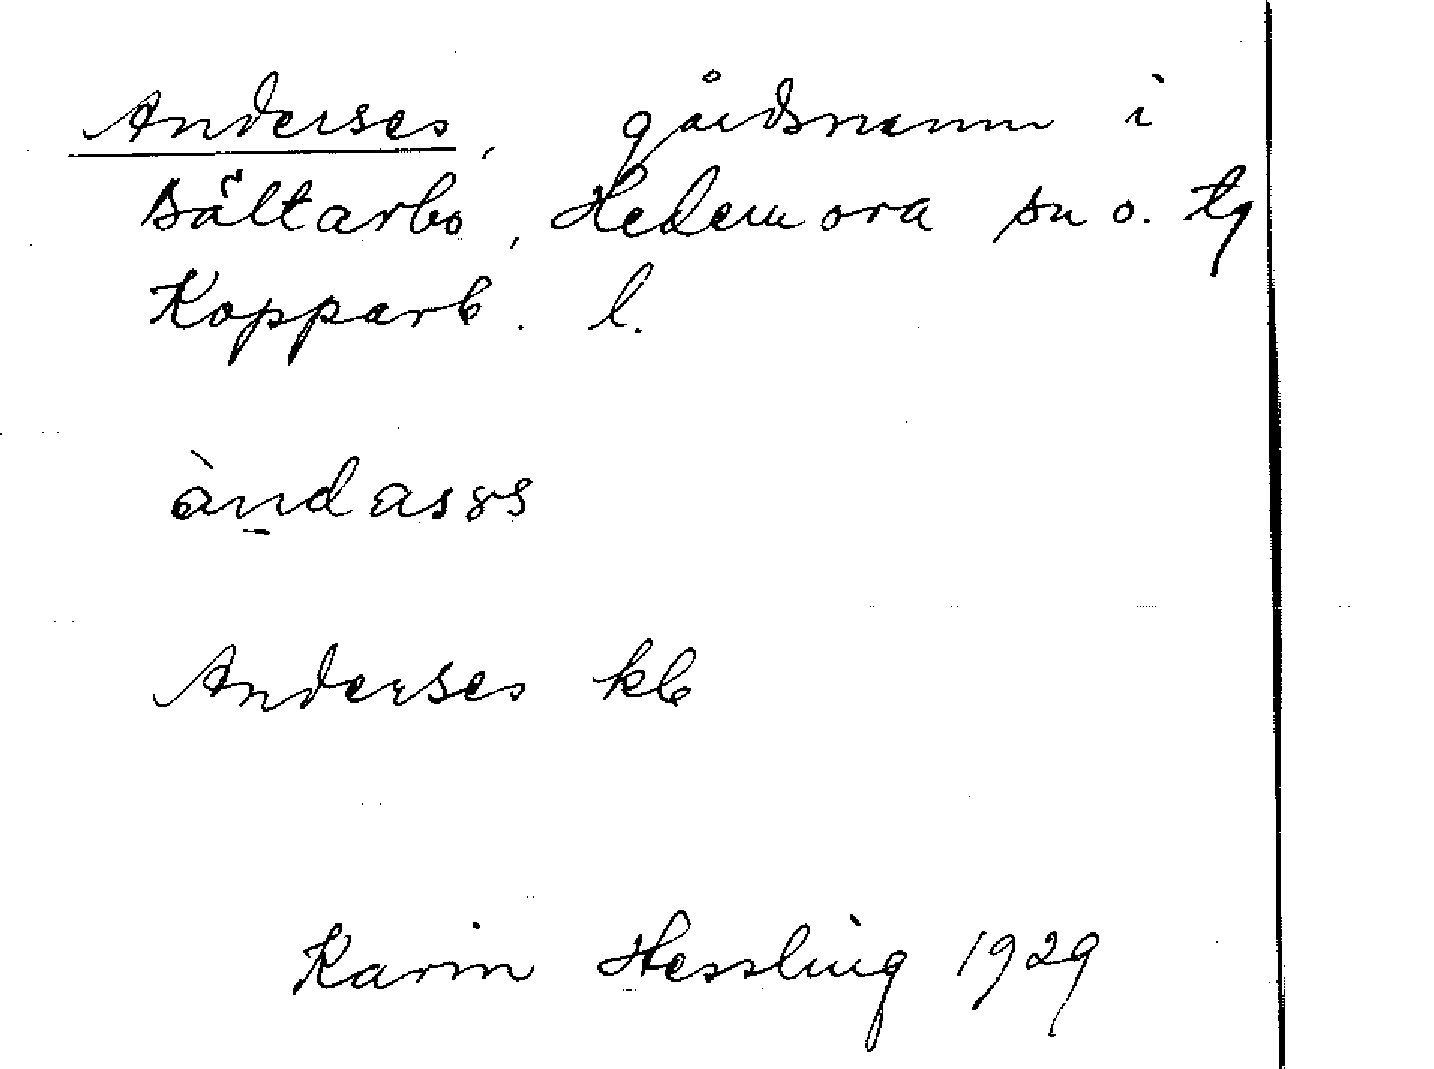 Anderses, gårdsnamn i
Bältarbo, Hedemora sn o. tg
Kopparb. l.
àndasəs
Anderses kb
Karin Hessling 1929